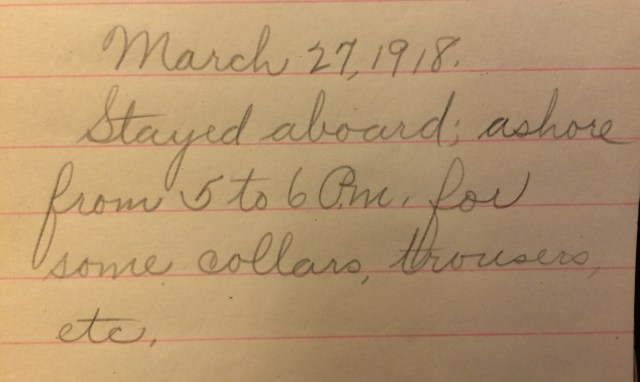 March 27, 1918.
Stayed aboard; ashore
from 5 to 6 P.m. for
some collars, trousers,
etc.